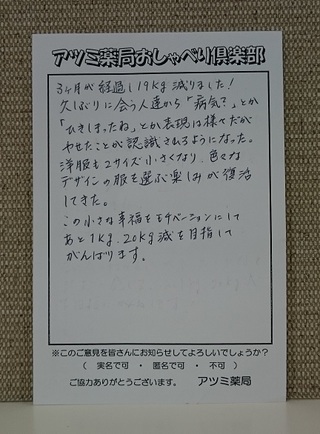 アツミ薬局おしゃべり倶楽部
3ヶ月が経過し19kg減りました!
久しぶりに会う人達から「病気?」とか
「ひきしまったね」とか表現は様々だが
やせたことが認識されるようになった。
洋服も2サイズ小さくなり、色々な
デザインの服を選ぶ楽しみが復活
してきた。
この小さな幸福をモチベーションにして
あと1kg、20kg減を目指して
がんばります。
※このご意見を皆さんにお知らせしてよろしいでしょうか?
( 実名で可 ・ 匿名で可 ・ 不可 )
ご協力ありがとうございます。 アツミ薬局